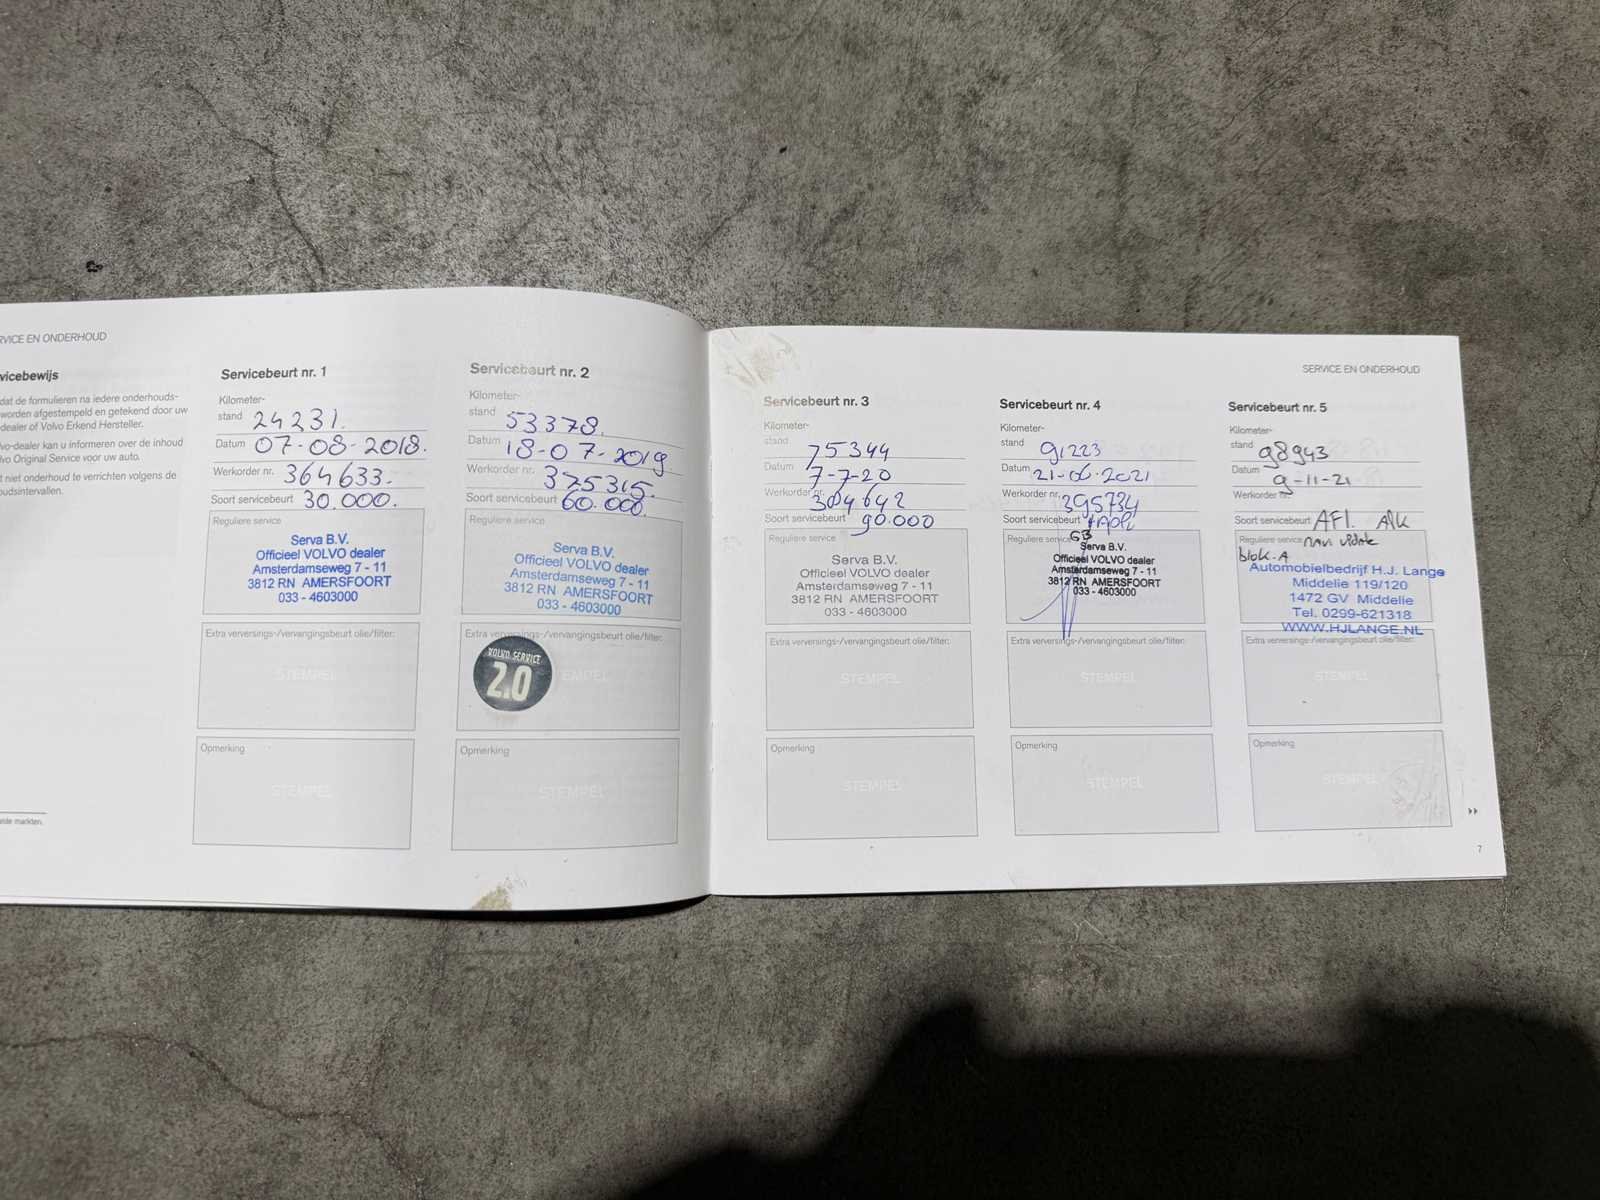 RVICE EN ONDERHOUD
vicebewijs
dat de formulieren na iedere onderhouds-
worden afgestempeld en getekend door uw
dealer of Volvo Erkend Hersteller.
lvo-dealer kan u informeren over de inhoud
lvo Original Service voor uw auto.
t niet onderhoud te verrichten volgens de
oudsintervallen.
elde markten.
Servicebeurt nr. 1
Kilometer-
stand 24231.
Datum 07-08-2018.
Werkorder nr. 364633.
Soort servicebeurt 30.000.
Reguliere service
Serva B.V.
Officieel VOLVO dealer
Amsterdamseweg 7 - 11
3812 RN AMERSFOORT
033 - 4603000
Extra verversings-/vervangingsbeurt olie/filter:
STEMPEL
Opmerking
STEMPEL
Servicebeurt nr. 2
Kilometer-
stand 53378.
Datum 18-07-2019
Werkorder nr. 375315.
Soort servicebeurt 60.000.
Reguliere service
Serva B.V.
Officieel VOLVO dealer
Amsterdamseweg 7 - 11
3812 RN AMERSFOORT
033 - 4603000
Extra verversings-/vervangingsbeurt olie/filter:
VOLVO SERVICE
2.0
EMPEL
Opmerking
STEMPEL
SERVICE EN ONDERHOUD
Servicebeurt nr. 3
Kilometer-
stand 75344
Datum 7-7-20
Werkorder nr.
Soort servicebeurt 90.000
Reguliere service
Serva B.V.
Officieel VOLVO dealer
Amsterdamseweg 7 - 11
3812 RN AMERSFOORT
033 - 4603000
Extra verversings-/vervangingsbeurt olie/filter:
STEMPEL
Opmerking
STEMPEL
Servicebeurt nr. 4
Kilometer-
stand 91223
Datum 21-06-2021
Werkorder nr. 395734
Soort servicebeurt
Reguliere service GB
Serva B.V.
Officieel VOLVO dealer
Amsterdamseweg 7 - 11
3812 RN AMERSFOORT
033 - 4603000
Extra verversings-/vervangingsbeurt olie/filter:
STEMPEL
Opmerking
STEMPEL
Servicebeurt nr. 5
Kilometer-
stand 98943
Datum 9-11-21
Werkorder nr.
Soort servicebeurt AFl.
Reguliere service
blok.A
Automobielbedrijf H.J. Lange
Middelie 119/120
1472 GV Middelie
Tel. 0299-621318
WWW.HJLANGE.NL
Extra verversings-/vervangingsbeurt olie/filter:
STEMPEL
Opmerking
STEMPEL
7